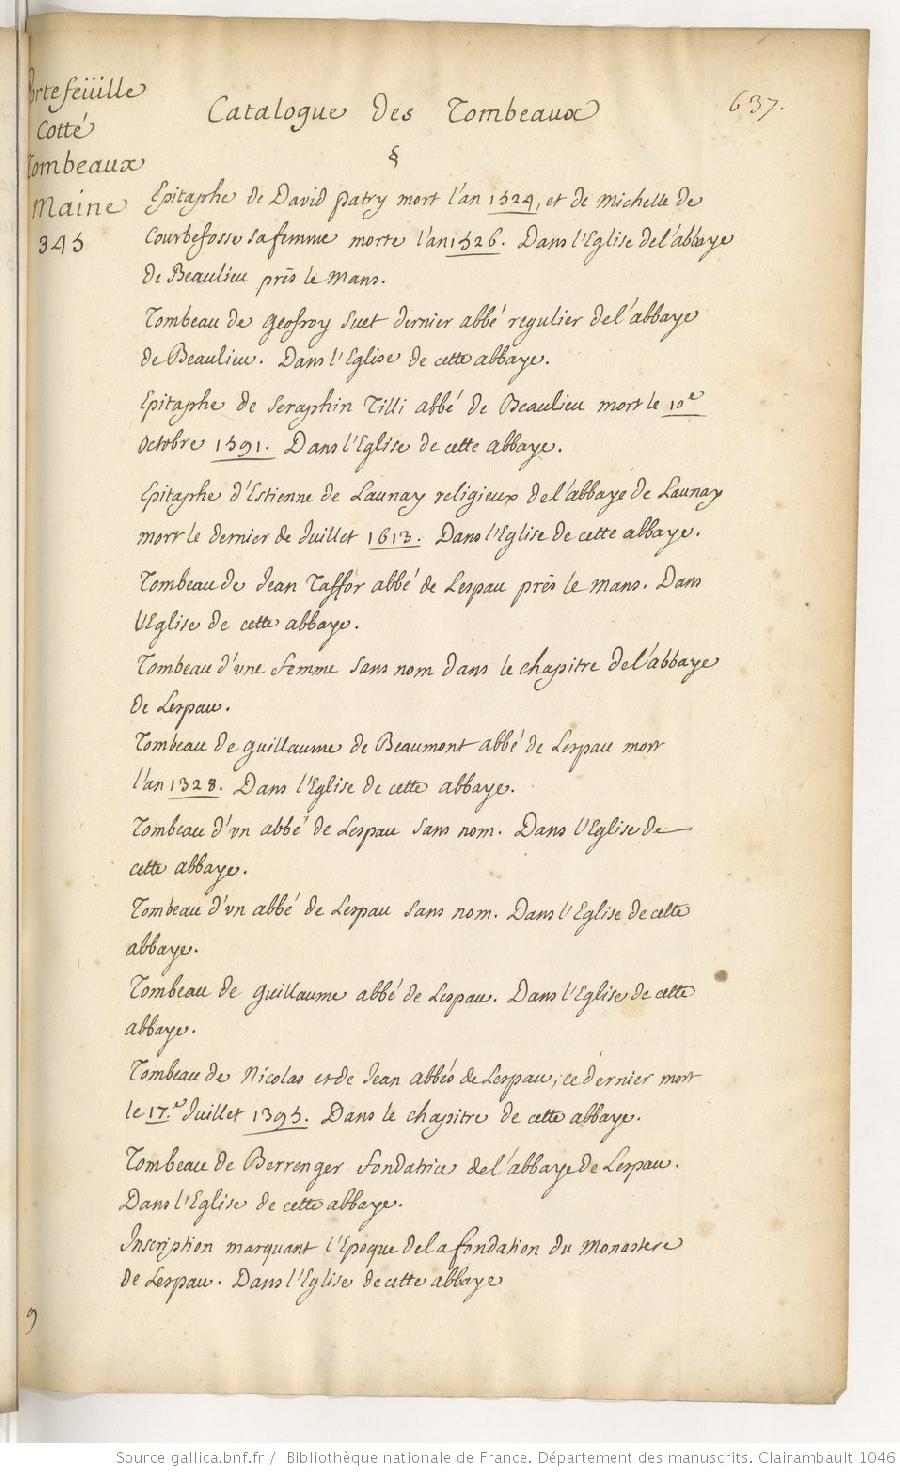 Portefeüille
Cotté
Tombeaux
Maine
345
Catalogue des Tombeaux
637.
§
Epitaphe de David patry mort l'an 1524, et de Michelle de
Courbefosse sa femme morte l'an 1526. Dans l'Eglise de l'abbaye
de Beaulieu prés le Mans.
Tombeau de Geofroy Suet dernier abbé regulier de l'abbaye
de Beaulieu. Dans l'Eglise de cette abbaye.
Epitaphe de Seraphin Tilli abbé de Beaulieu mort le 10e
Octobre 1591. Dans l'Eglise de cette abbaye.
Epitaphe d'Estienne de Launay religieux de l'abbaye de Launay
mort le dernier de Juillet 1613. Dans l'Eglise de cette abbaye.
Tombeau de Jean Taffor abbé de Lespau prés le Mans. Dans
l'Eglise de cette abbaye.
Tombeau d'une femme sans nom dans le chapitre de l'abbaye
de Lespau.
Tombeau de Guillaume de Beaumont abbé de Lespau mort
l'an 1328. Dans l'Eglise de cette abbaye.
Tombeau d'vn abbé de Lespau sans nom. Dans l'Eglise de
cette abbaye.
Tombeau d'vn abbé de Lespau sans nom. Dans l'Eglise de cette
abbaye.
Tombeau de Guillaume abbé de Lespau. Dans l'Eglise de cette
abbaye.
Tombeau de Nicolas et de Jean abbés de Lespau, ce dernier mort
le 17.e Juillet 1395. Dans le chapitre de cette abbaye.
Tombeau de Berrenger fondatrice de l'abbaye de Lespau.
Dans l'Eglise de cette abbaye.
Inscription marquant l'Epoque de la fondation du Monastere
de Lespau. Dans l'Eglise de cette abbaye
Source gallica.bnf.fr / Bibliothèque nationale de France. Département des manuscrits. Clairambault 1046